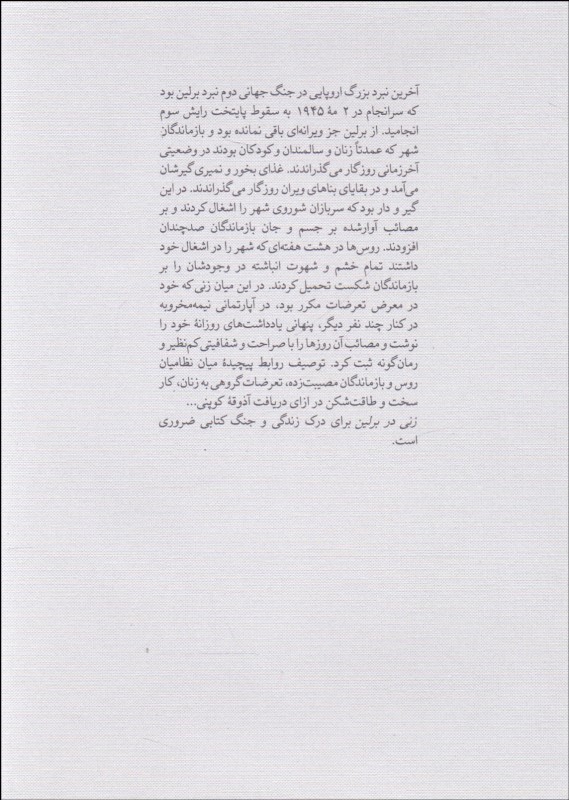 آخرین نبرد بزرگ اروپایی در جنگ جهانی دوم نبرد برلین بود
که سرانجام در ۲ مهٔ ۱۹۴۵ به سقوط پایتخت رایش سوم
انجامید. از برلین جز ویرانه‌ای باقی نمانده بود و بازماندگان
شهر که عمدتاً زنان و سالمندان و کودکان بودند در وضعیتی
آخرزمانی روزگار می‌گذراندند. غذای بخور و نمیری گیرشان
می‌آمد و در بقایای بناهای ویران روزگار می‌گذراندند. در این
گیر و دار بود که سربازان شوروی شهر را اشغال کردند و بر
مصائب آوارشده بر جسم و جان بازماندگان صدچندان
افزودند. روس‌ها در هشت هفته‌ای که شهر را در اشغال خود
داشتند تمام خشم و شهوت انباشته در وجودشان را بر
بازماندگان شکست تحمیل کردند. در این میان زنی که خود
در معرض تعرضات مکرر بود، در آپارتمانی نیمه‌مخروبه
در کنار چند نفر دیگر، پنهانی یادداشت‌های روزانهٔ خود را
نوشت و مصائب آن روزها را با صراحت و شفافیتی کم‌نظیر و
رمان‌گونه ثبت کرد. توصیف روابط پیچیدهٔ میان نظامیان
روس و بازماندگان مصیبت‌زده، تعرضات گروهی به زنان، کار
سخت و طاقت‌شکن در ازای دریافت آذوقهٔ کوپنی...
زنی در برلین برای درک زندگی و جنگ کتابی ضروری
است.